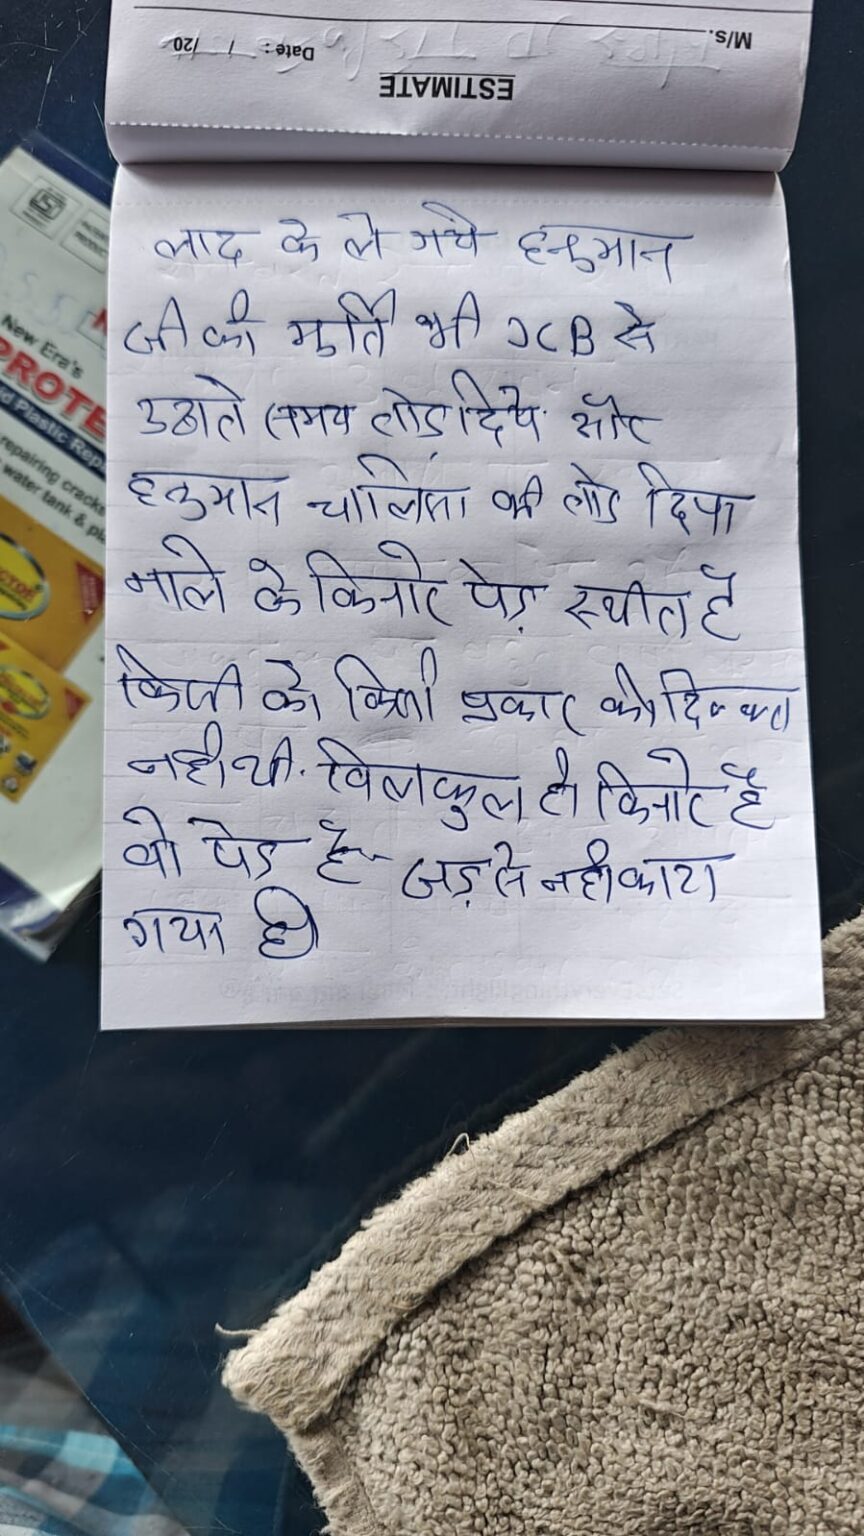 M/s.
Date : / /20
ESTIMATE
लाद के ले गये हनुमान
जी की मुर्ति भी JCB से
उठाते समय तोड़ दिये और
हनुमान चालिसा की तोड़ दिया
नाले के किनारे पेड़ स्थीत है
किसी को किसी प्रकार की दिक्कत
नही थी. विलकुल ही किनारे है
वो पेड है जड़ से नही काटा
गया है
New Era's
PROTE
d Plastic Rep
repairing cracks
water tank & pl